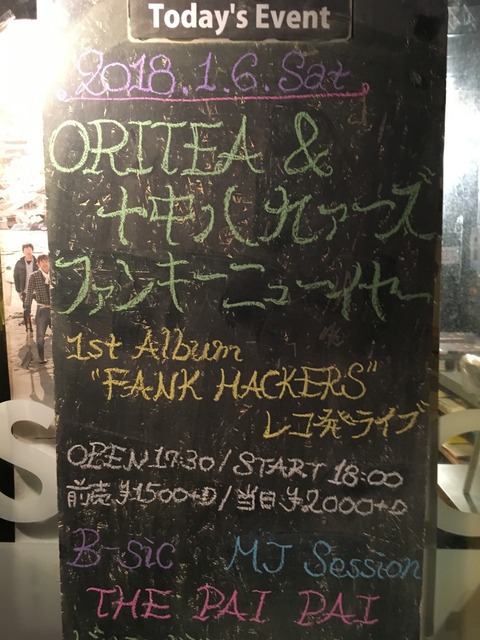 Today's Event
2018.1.6.Sat
ORITEA &
ナキハ九ァーズ
ファンキーニューイヤー
1st Album
"FANK HACKERS"
レコ発ライブ
OPEN 17:30 / START 18:00
前売 ¥1500+D / 当日 ¥2000+D
B-sic MJ Session
THE PAI PAI